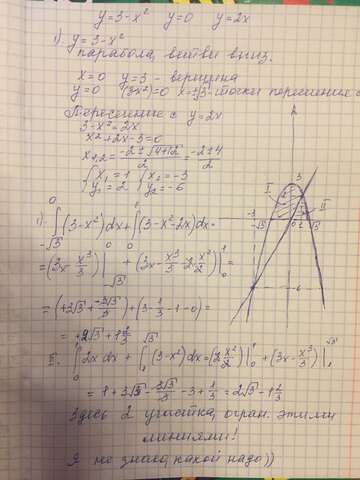 y=3-x² y=0 y=2x
1) y=3-x²
парабола, ветви вниз.
x=0 y=3 - вершина
y=0 (3-x²)=0 x=±√3 - точки пересечения с
Пересечение с y=2x
3-x²=2x
x²+2x-3=0
x₁,₂ = (-2±√(4+12))/2 = (-2±4)/2
{x₁=1 {x₂=-3
y₁=2 y₂=-6
I). ∫_{-√3}^{0} (3-x²)dx + ∫_{0}^{1} (3-x²-2x)dx =
= (3x - x³/3)|_{-√3}^{0} + (3x - x³/3 - 2x²/2)|_{0}^{1} =
= (+2√3 + (-3√3)/3) + (3 - 1/3 - 1 - 0) =
= +2√3 + 1 2/3
II. ∫_{0}^{1} 2x dx + ∫_{1}^{√3} (3-x²)dx = (2x²/2)|_{0}^{1} + (3x - x³/3)|_{1}^{√3}
= 1 + 3√3 - 3√3/3 - 3 + 1/3 = 2√3 - 1 2/3
Здесь 2 участка, огран. этими
линиями!
Я не знаю, какой надо))
3
I
II
-3
-√3
0
1
√3
-6